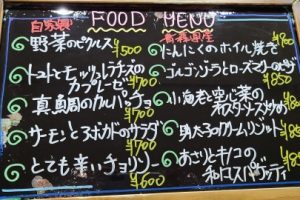 FOOD MENU
自家製
野菜のピクルス ¥500
トマトとモッツァレラチーズの
カプレーゼ ¥700
真鯛のカルパッチョ ¥700
サーモンとアボカドのサラダ ¥700
とても辛いチョリソー ¥600
青森県産
にんにくのホイル焼き
ゴルゴンゾーラとローズマリーの
¥850
小海老と空心菜の
明太子のクリームリゾット
あさりとキノコの
和風スパゲッティ